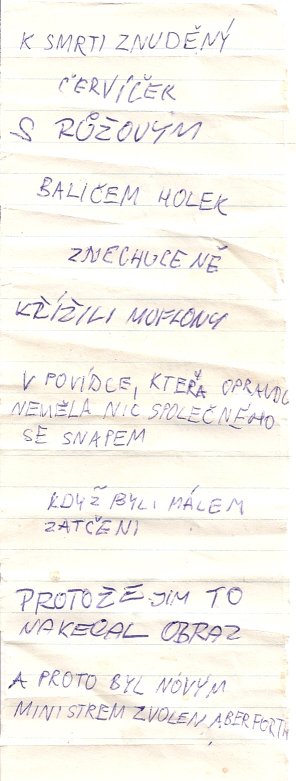 K SMRTI ZNUDĚNÝ
ČERVÍČEK
S RŮŽOVÝM
BALIČEM HOLEK
ZNECHUCENĚ
KŘÍŽILI MUFLONY
V POVÍDCE, KTEŘÁ OPRAVDU
NEMĚLA NIC SPOLEČNÉHO
SE SNAPEM
KDYŽ BYLI MÁLEM
ZATČENI
PROTOŽE JIM TO
NAKECAL OBRAZ
A PROTO BYL NOVÝM
MINISTREM ZVOLEN ABERFORTH